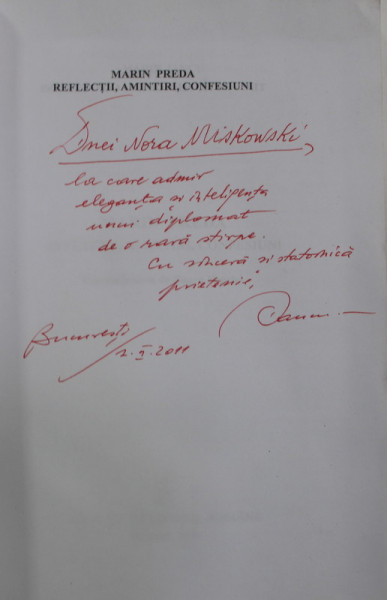 MARIN PREDA
REFLECȚII, AMINTIRI, CONFESIUNI
Dnei Nora Miskowski,
la care admir
eleganța și inteligența
unui diplomat
de o rară stirpe.
Cu sinceră și statornică
prietenie,
București
2011